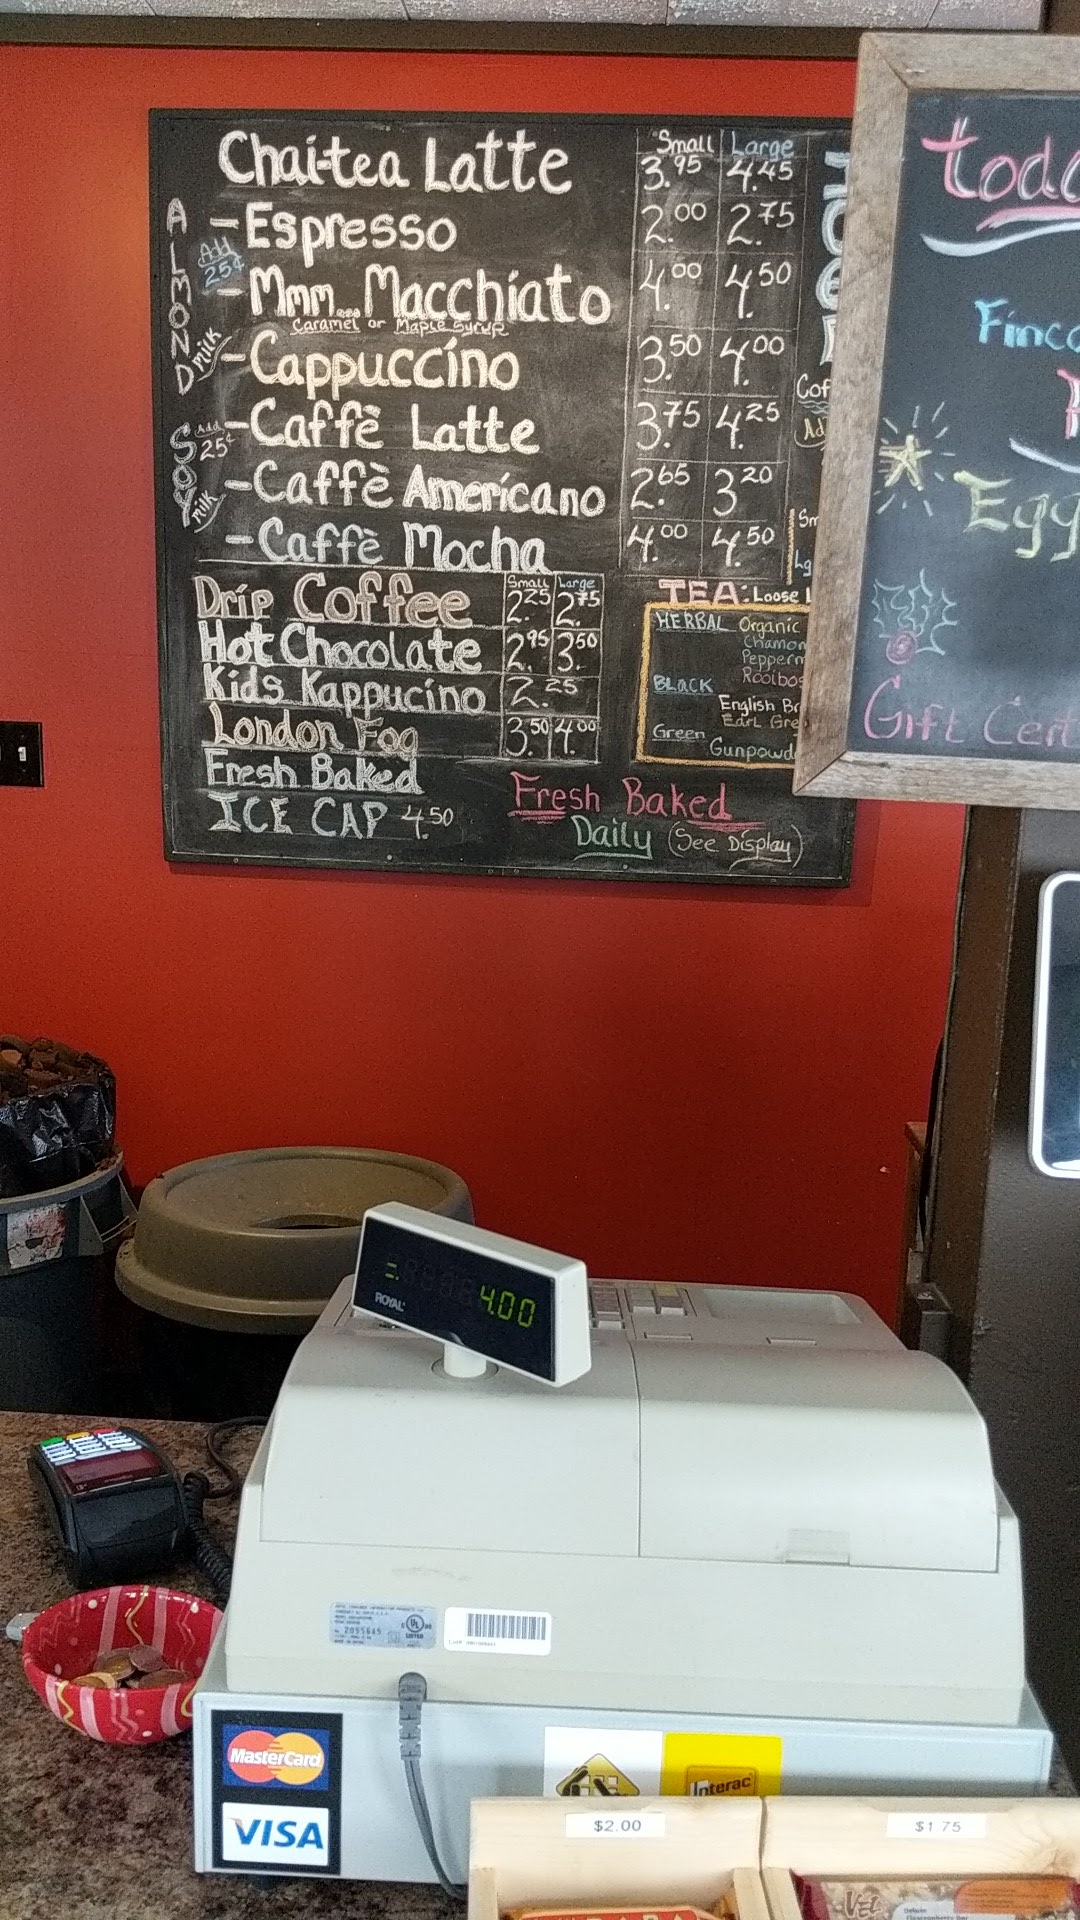 Small Large
Chai-tea Latte 3.95 4.45
- Espresso 2.00 2.75
- Mmm... Macchiato 4.00 4.50
Caramel or Maple Syrup
- Cappuccino 3.50 4.00
- Caffè Latte 3.75 4.25
- Caffè Americano 2.65 3.20
- Caffè Mocha 4.00 4.50
ALMOND milk
Add 25¢
SOY milk
Add 25¢
Small Large
Drip Coffee 2.25 2.75
Hot Chocolate 2.95 3.50
Kids Kappucino 2.25
London Fog 3.50 4.00
Fresh Baked
ICE CAP 4.50
Cof
Ad
Sm
Lg
TEA: Loose L
HERBAL Organic
Chamom
Pepperm
Rooibos
BLACK
English Br
Earl Gre
Green
Gunpowd
Fresh Baked
Daily (See Display)
toda
Finca
Egg
Gift Cert
4.00
ROYAL
2055645
MasterCard
VISA
Interac
$2.00
$1.75
VEL